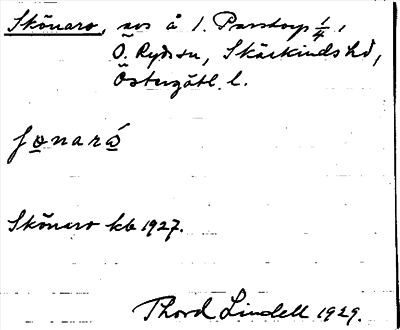 Skönaro, sos å 1. Parstorp 1/4,
Ö. Ryds sn, Skärkinds hd,
Östergötl. l.
fo̲naró̲
Skönaro kb 1927.
Thord Lindell 1929.